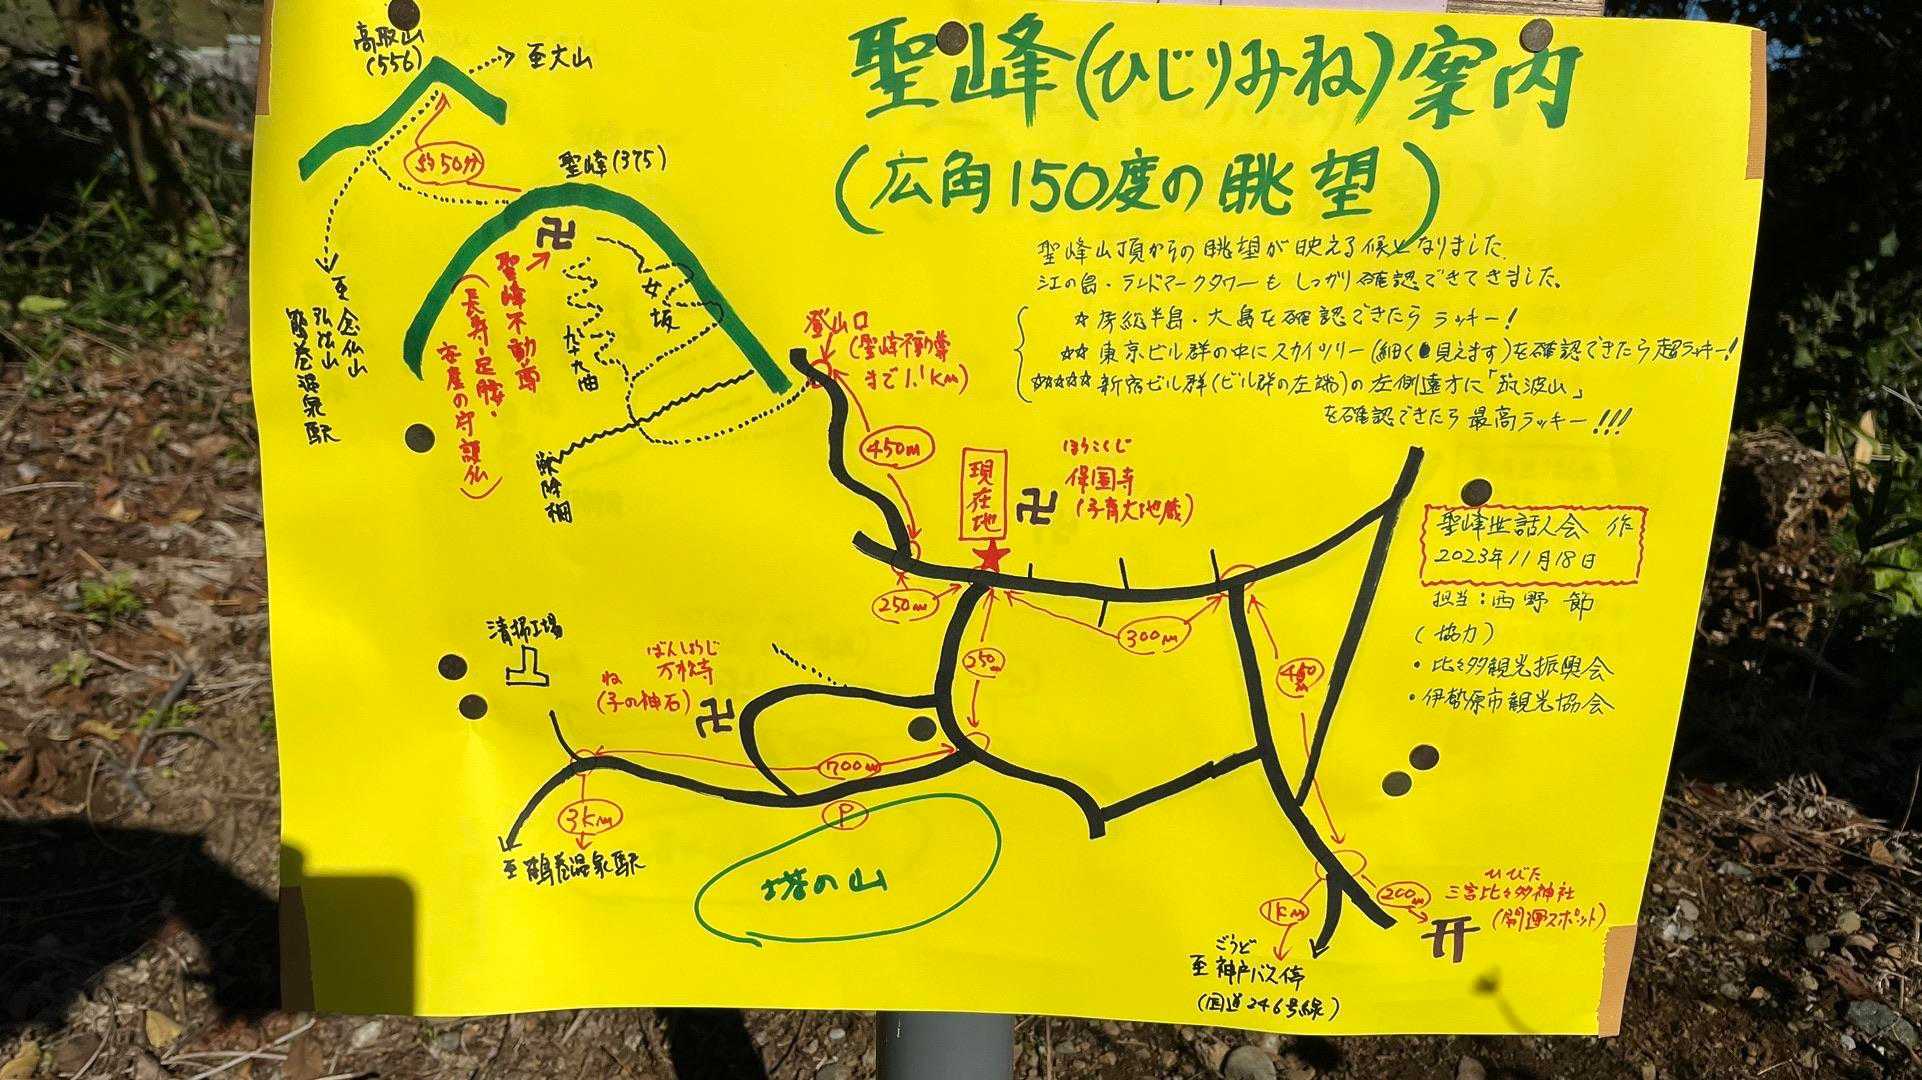 聖峰(ひじりみね)案内
(広角150度の眺望)
聖峰山頂からの眺望が映える候となりました.
江の島・ランドマークタワーも しっかり確認できてきました。
☆ 房総半島・大島を確認できたら ラッキー!
☆☆ 東京ビル群の中にスカイツリー(細く見えます)を確認できたら超ラッキー!
☆☆☆☆ 新宿ビル群(ビル群の左端)の左側遠方に「筑波山」
を確認できたら 最高ラッキー!!!
高取山
(556)
至大山
約50分
聖峰(375)
卍
聖峰不動尊
(長寿・足腰・
安産の守護仏)
女坂
九十九曲
至 念仏山
弘法山
鶴巻温泉駅
鹿除柵
登山口
(聖峰不動尊
まで1.1Km)
450m
現在地
ほうこくじ
保国寺
(子育大地蔵)
卍
250m
300m
250m
450m
聖峰世話人会 作
2023年11月18日
担当:西野 節
(協力)
・比々多観光振興会
・伊勢原市観光協会
清掃工場
ばんしょうじ
万松寺
ね
(子の神石)
卍
700m
3Km
P
至 鶴巻温泉駅
塔の山
1Km
200m
ひびた
三宮比々多神社
(開運スポット)
ごうど
至 神戸バス停
(国道246号線)